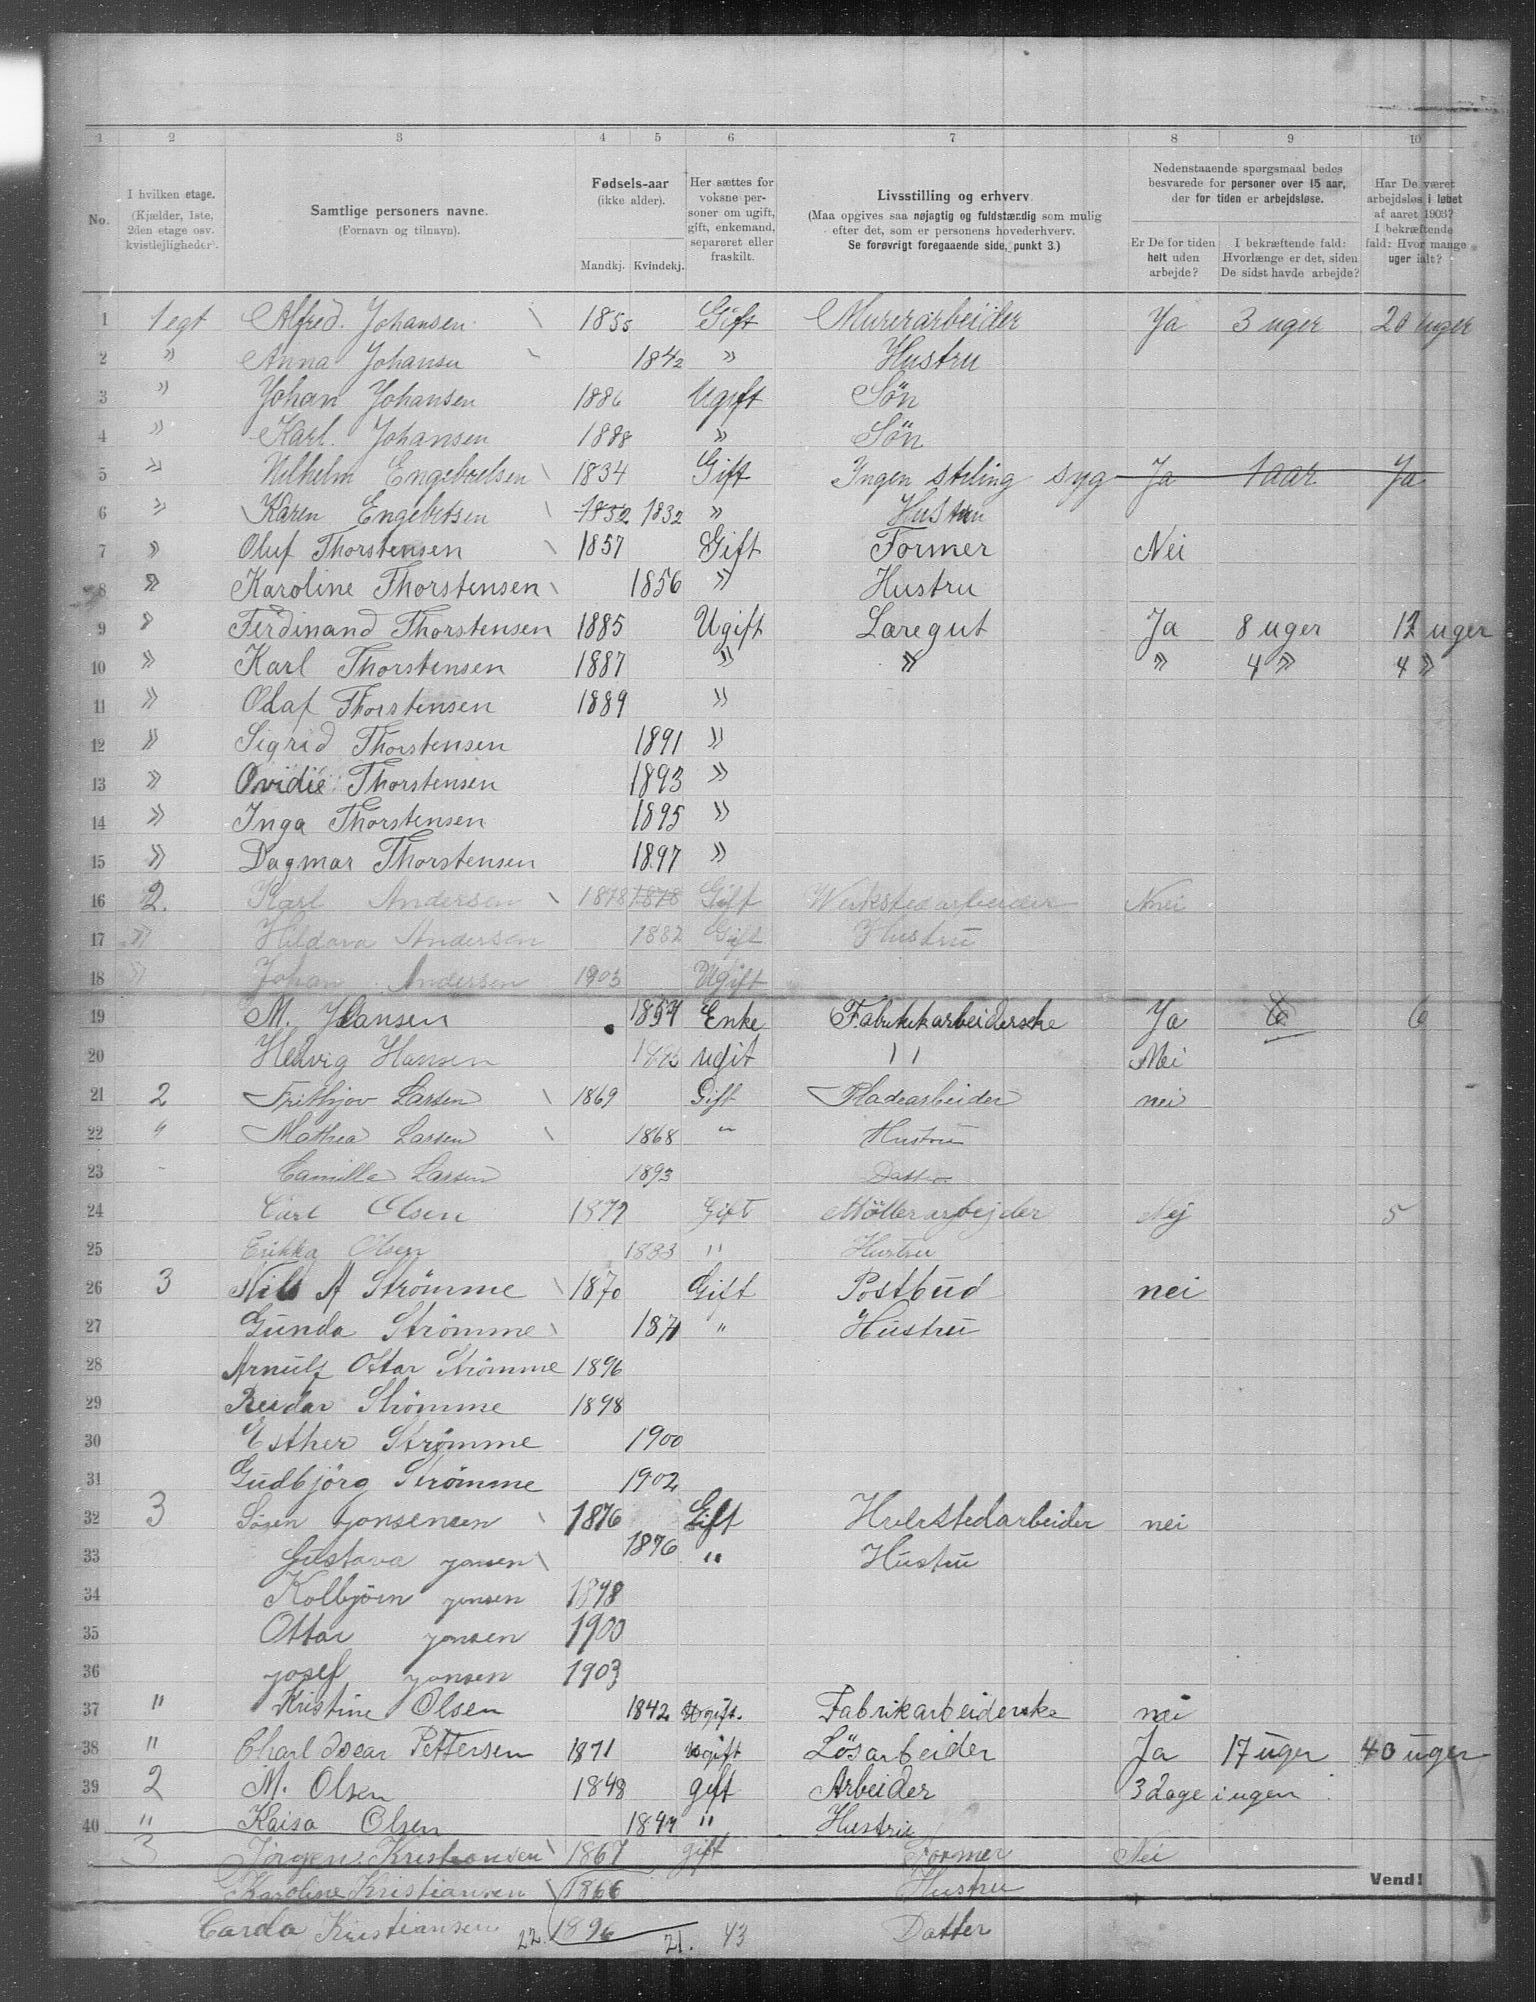 1 2 3 4 5 6 7 8 9 10
No.
I hvilken etage. (Kjælder, 1ste, 2den etage osv. kvistleiligheder).
Samtlige personers navne. (Fornavn og tilnavn).
Fødsels-aar (ikke alder). Mandkj. Kvindekj.
Her sættes for voksne personer om ugift, gift, enkemand, separeret eller fraskilt.
Livsstilling og erhverv. (Maa opgives saa nøjagtig og fuldstændig som mulig efter det, som er personens hovederhverv. Se forøvrigt foregaaende side, punkt 3.)
Nedenstaaende spørgsmaal bedes besvarede for personer over 15 aar, der for tiden er arbejdsløse.
Er De for tiden helt uden arbejde?
I bekræftende fald: Hvorlænge er det, siden De sidst havde arbejde?
Har De været arbejdsløs i løbet af aaret 1903? I bekræftende fald: Hvor mange uger ialt?
1 1 egt Alfred. Johansen 1855 Gift Murerarbeider Ja 3 uger 20 uger
2 " Anna Johansen 1842 " Hustru
3 " Johan Johansen 1886 Ugift Søn
4 " Karl Johansen 1888 " Søn
5 " Vilhelm Engebretsen 1834 Gift Ingen stiling syg Ja 1 aar Ja
6 " Karen Engebretsen 1832 1832 " Hustru
7 " Oluf Thorstensen 1857 Gift Former Nei
8 " Karoline Thorstensen 1856 " Hustru
9 " Ferdinand Thorstensen 1885 Ugift Læregut Ja 8 uger 12 uger
10 " Karl Thorstensen 1887 " " " 4 " 4 "
11 " Olaf Thorstensen 1889 "
12 " Sigrid Thorstensen 1891 "
13 " Ovidie Thorstensen 1893 "
14 " Inga Thorstensen 1895 "
15 " Dagmar Thorstensen 1897 "
16 2. Karl Andersen 1878 1878 Gift Verkstedarbeider Nnei
17 " Hildava Andersen 1882 Gift Hustru
18 " Johan Andersen 1903 Ugift
19 M. Hansen 1854 Enke Fabrikkarbeiderske Ja 6 6
20 Hedvig Hansen ugit " Nei
21 2 Frithjov Larsen 1869 Gift Pladearbeider nei
22 " Mathea Larsen 1868 " Hustru
23 Camilla Larsen 1893 Datter
24 Carl Olsen 1877 Gift Möllerarbejder Nej 5
25 Erikka Olsen 1883 " Hustru
26 3 Nils A Strömme 1870 Gift Postbud nei
27 Gunda Strömme 1871 " Hustru
28 Arnulf Ottar Strömme 1896
29 Reidar Strömme 1898
30 Esther Strömme 1900
31 Gudbjörg Strömme 1902
32 3 Søren jonsensen 1876 Gift Hverstedarbeider nei
33 Gustava jonsen 1876 " Hustru
34 Kolbjørn jonsen 1898
35 Ottar jonsen 1900
36 josef jonsen 1903
37 " Kristine Olsen 1842 Ugift. Fabrikarbeiderske nei
38 " Charl Oscar Pettersen 1871 Ugift Løsarbeider Ja 17 uger 40 uger
39 2 M. Olsen 1848 gift Arbeider 3 dage i ugen
40 " Kaisa Olsen 1847 " Hustru
3 Jörgen Kristiansen 1867 gift Former Nei
Vend!
Karoline Kristiansen 1866 Hustru
Carda Kristiansen 1896 Datter
22. 21. 43